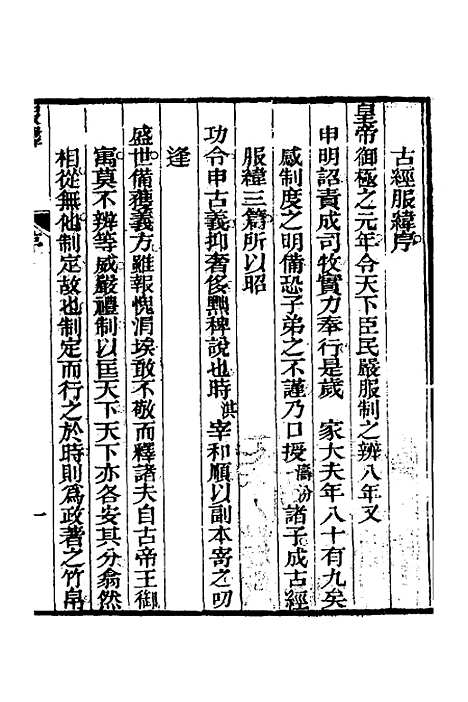 古經服緯序
皇帝御極之元年令天下臣民嚴服制之辨八年又
申明詔責成司牧實力奉行是歲 家大夫年八十有九矣
感制度之明備恐子弟之不謹乃口授瀋汾諸子成古經
服緯三篇所以昭
功令申古義抑奢侈黜稗說也時淇宰和順以副本寄之叨
逢
盛世備獲義方雖報愧涓埃敢不敬而釋諸夫自古帝王御
寓莫不辨等威嚴禮制以匡天下天下亦各安其分翕然
相從無他制定故也制定而行之於時則爲政著之竹帛
序
一